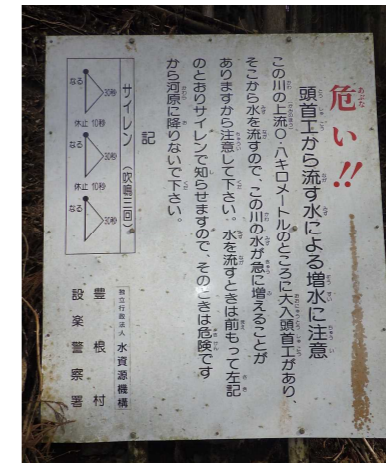 危い!!
頭首工から流す水による増水に注意
この川の上流〇・八キロメートルのところに大入頭首工があり、
そこから水を流すので、この川の水が急に増えることが
ありますから注意して下さい。水を流すときは前もって左記
のとおりサイレンで知らせますので、そのときは危険です
から河原に降りないで下さい。
記
サイレン(吹鳴三回)
なる 30秒
休止 10秒
なる 30秒
休止 10秒
なる 30秒
独立行政法人 水資源機構
豊根村
設楽警察署